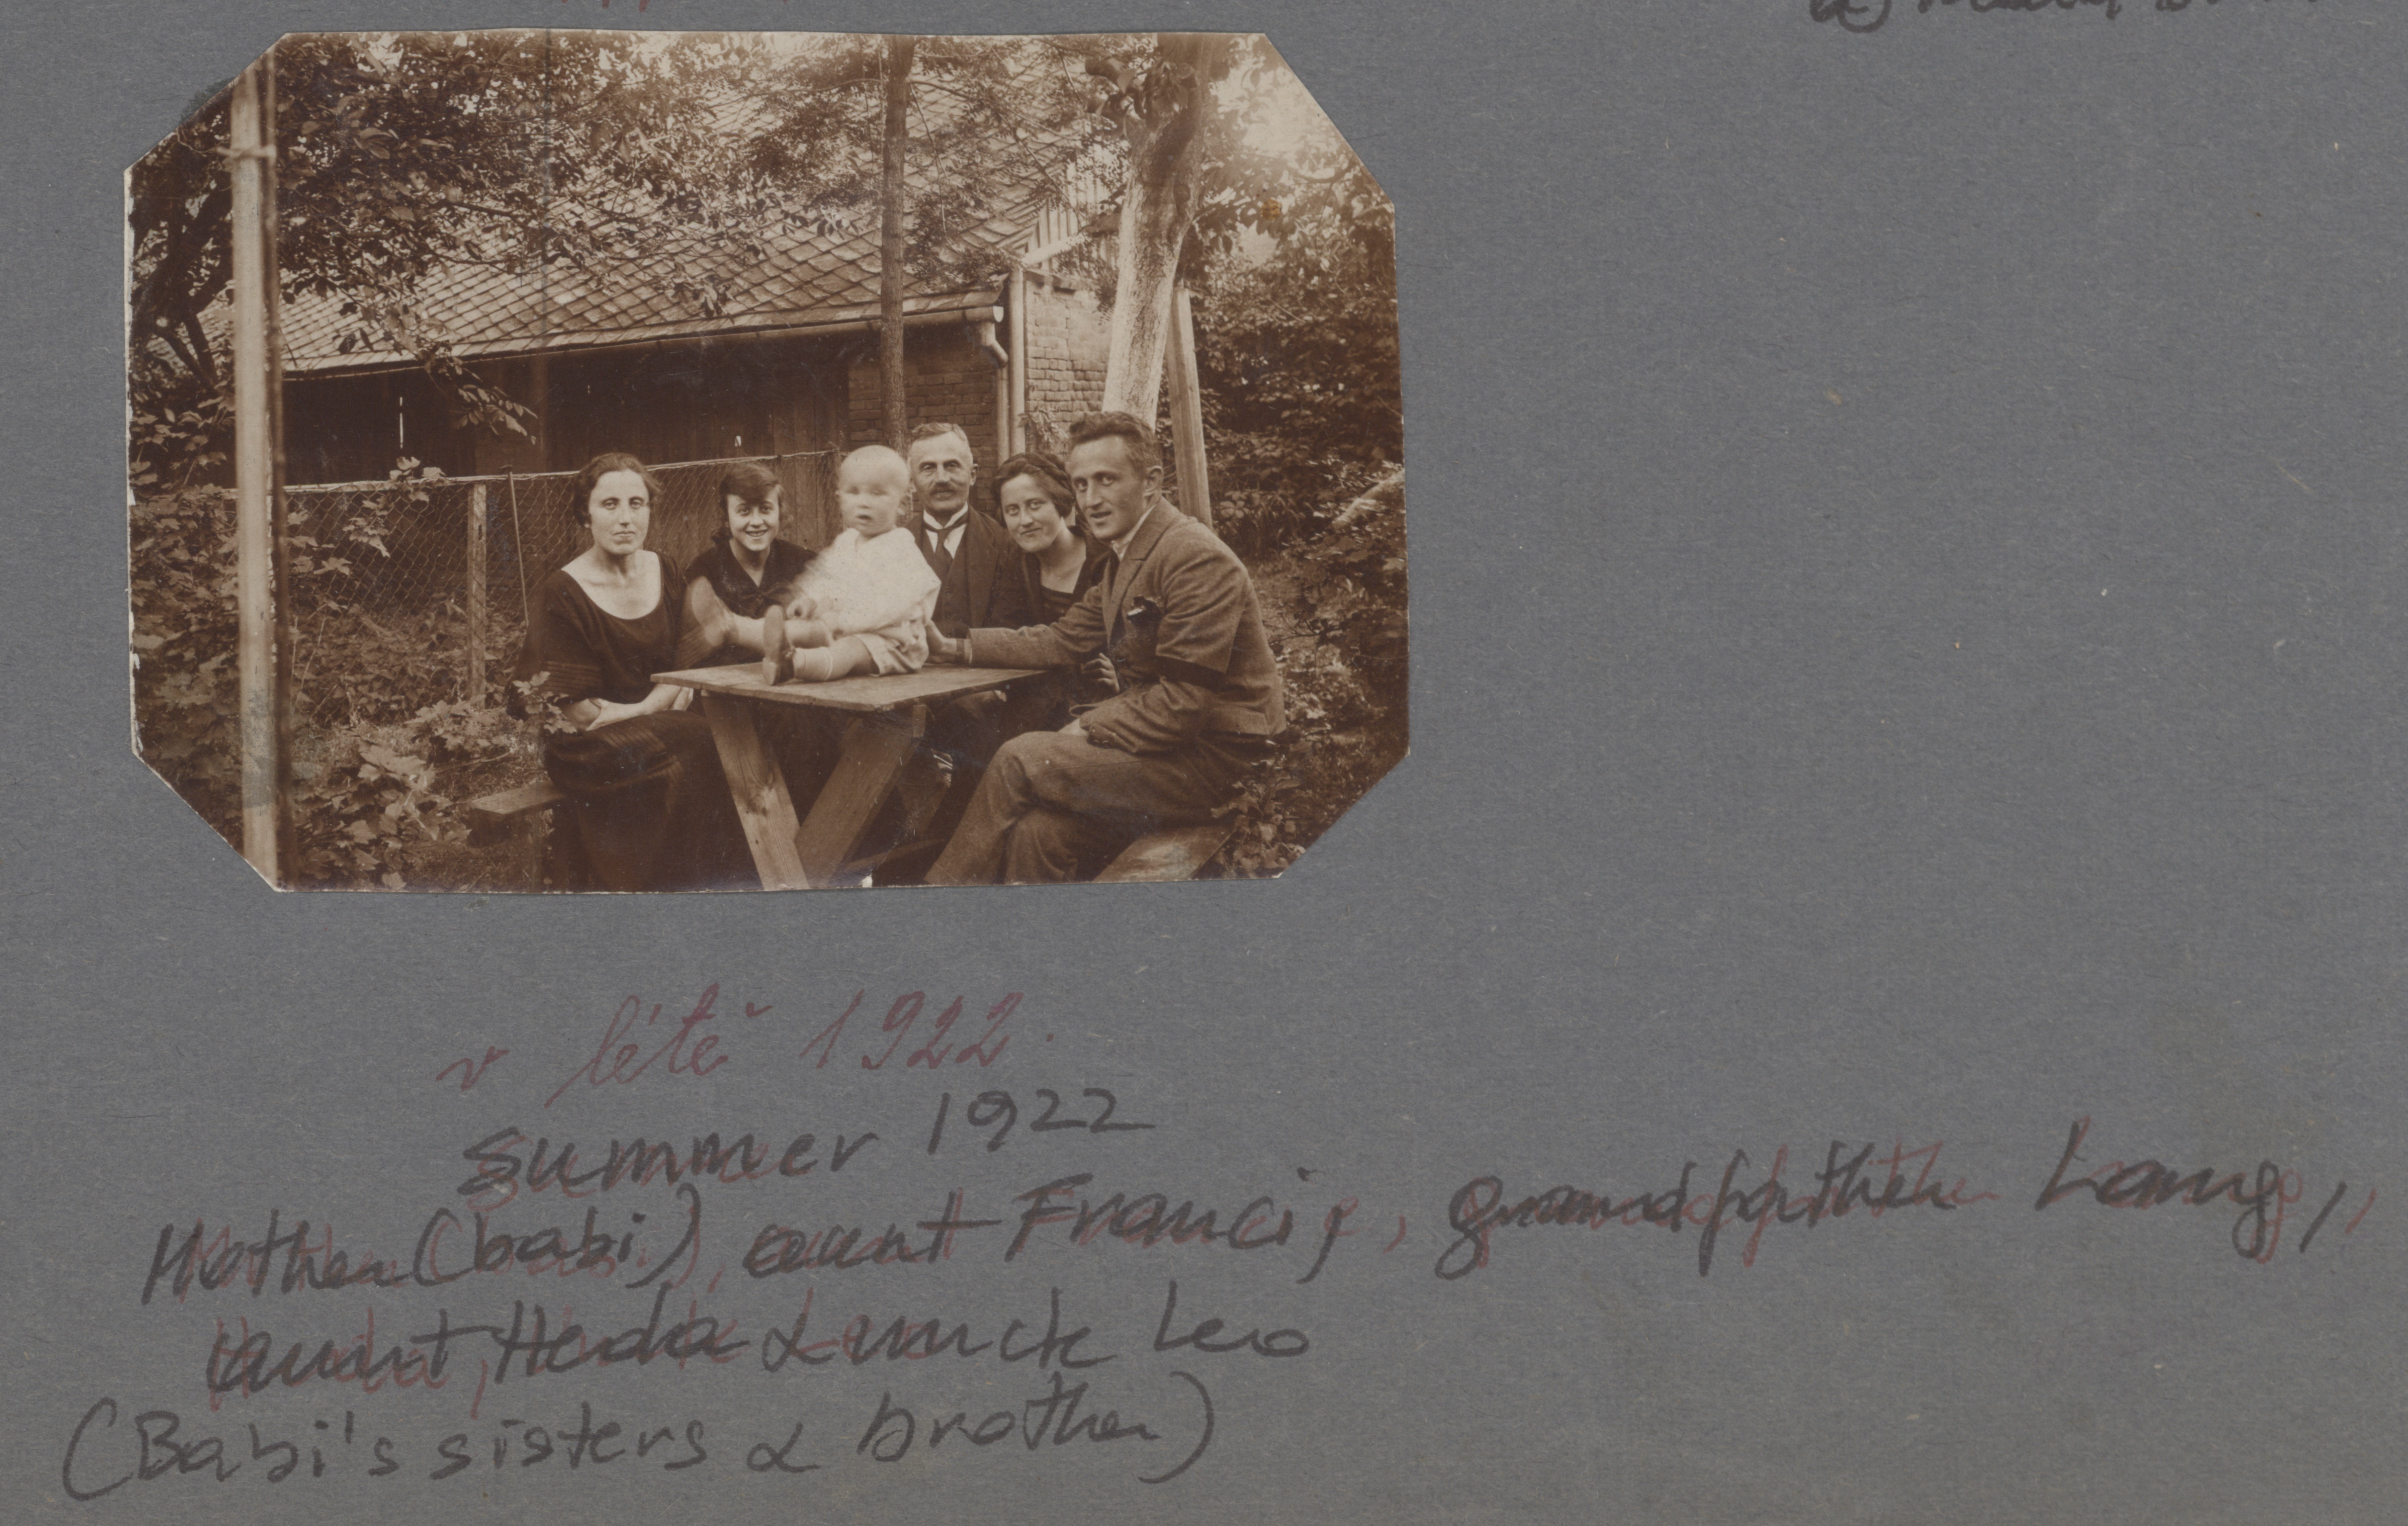 v létě 1922.
summer 1922
Mother (babi), aunt Francis, grandfather Lang,
aunt, Heda & uncle Leo
(Babi's sisters & brother)